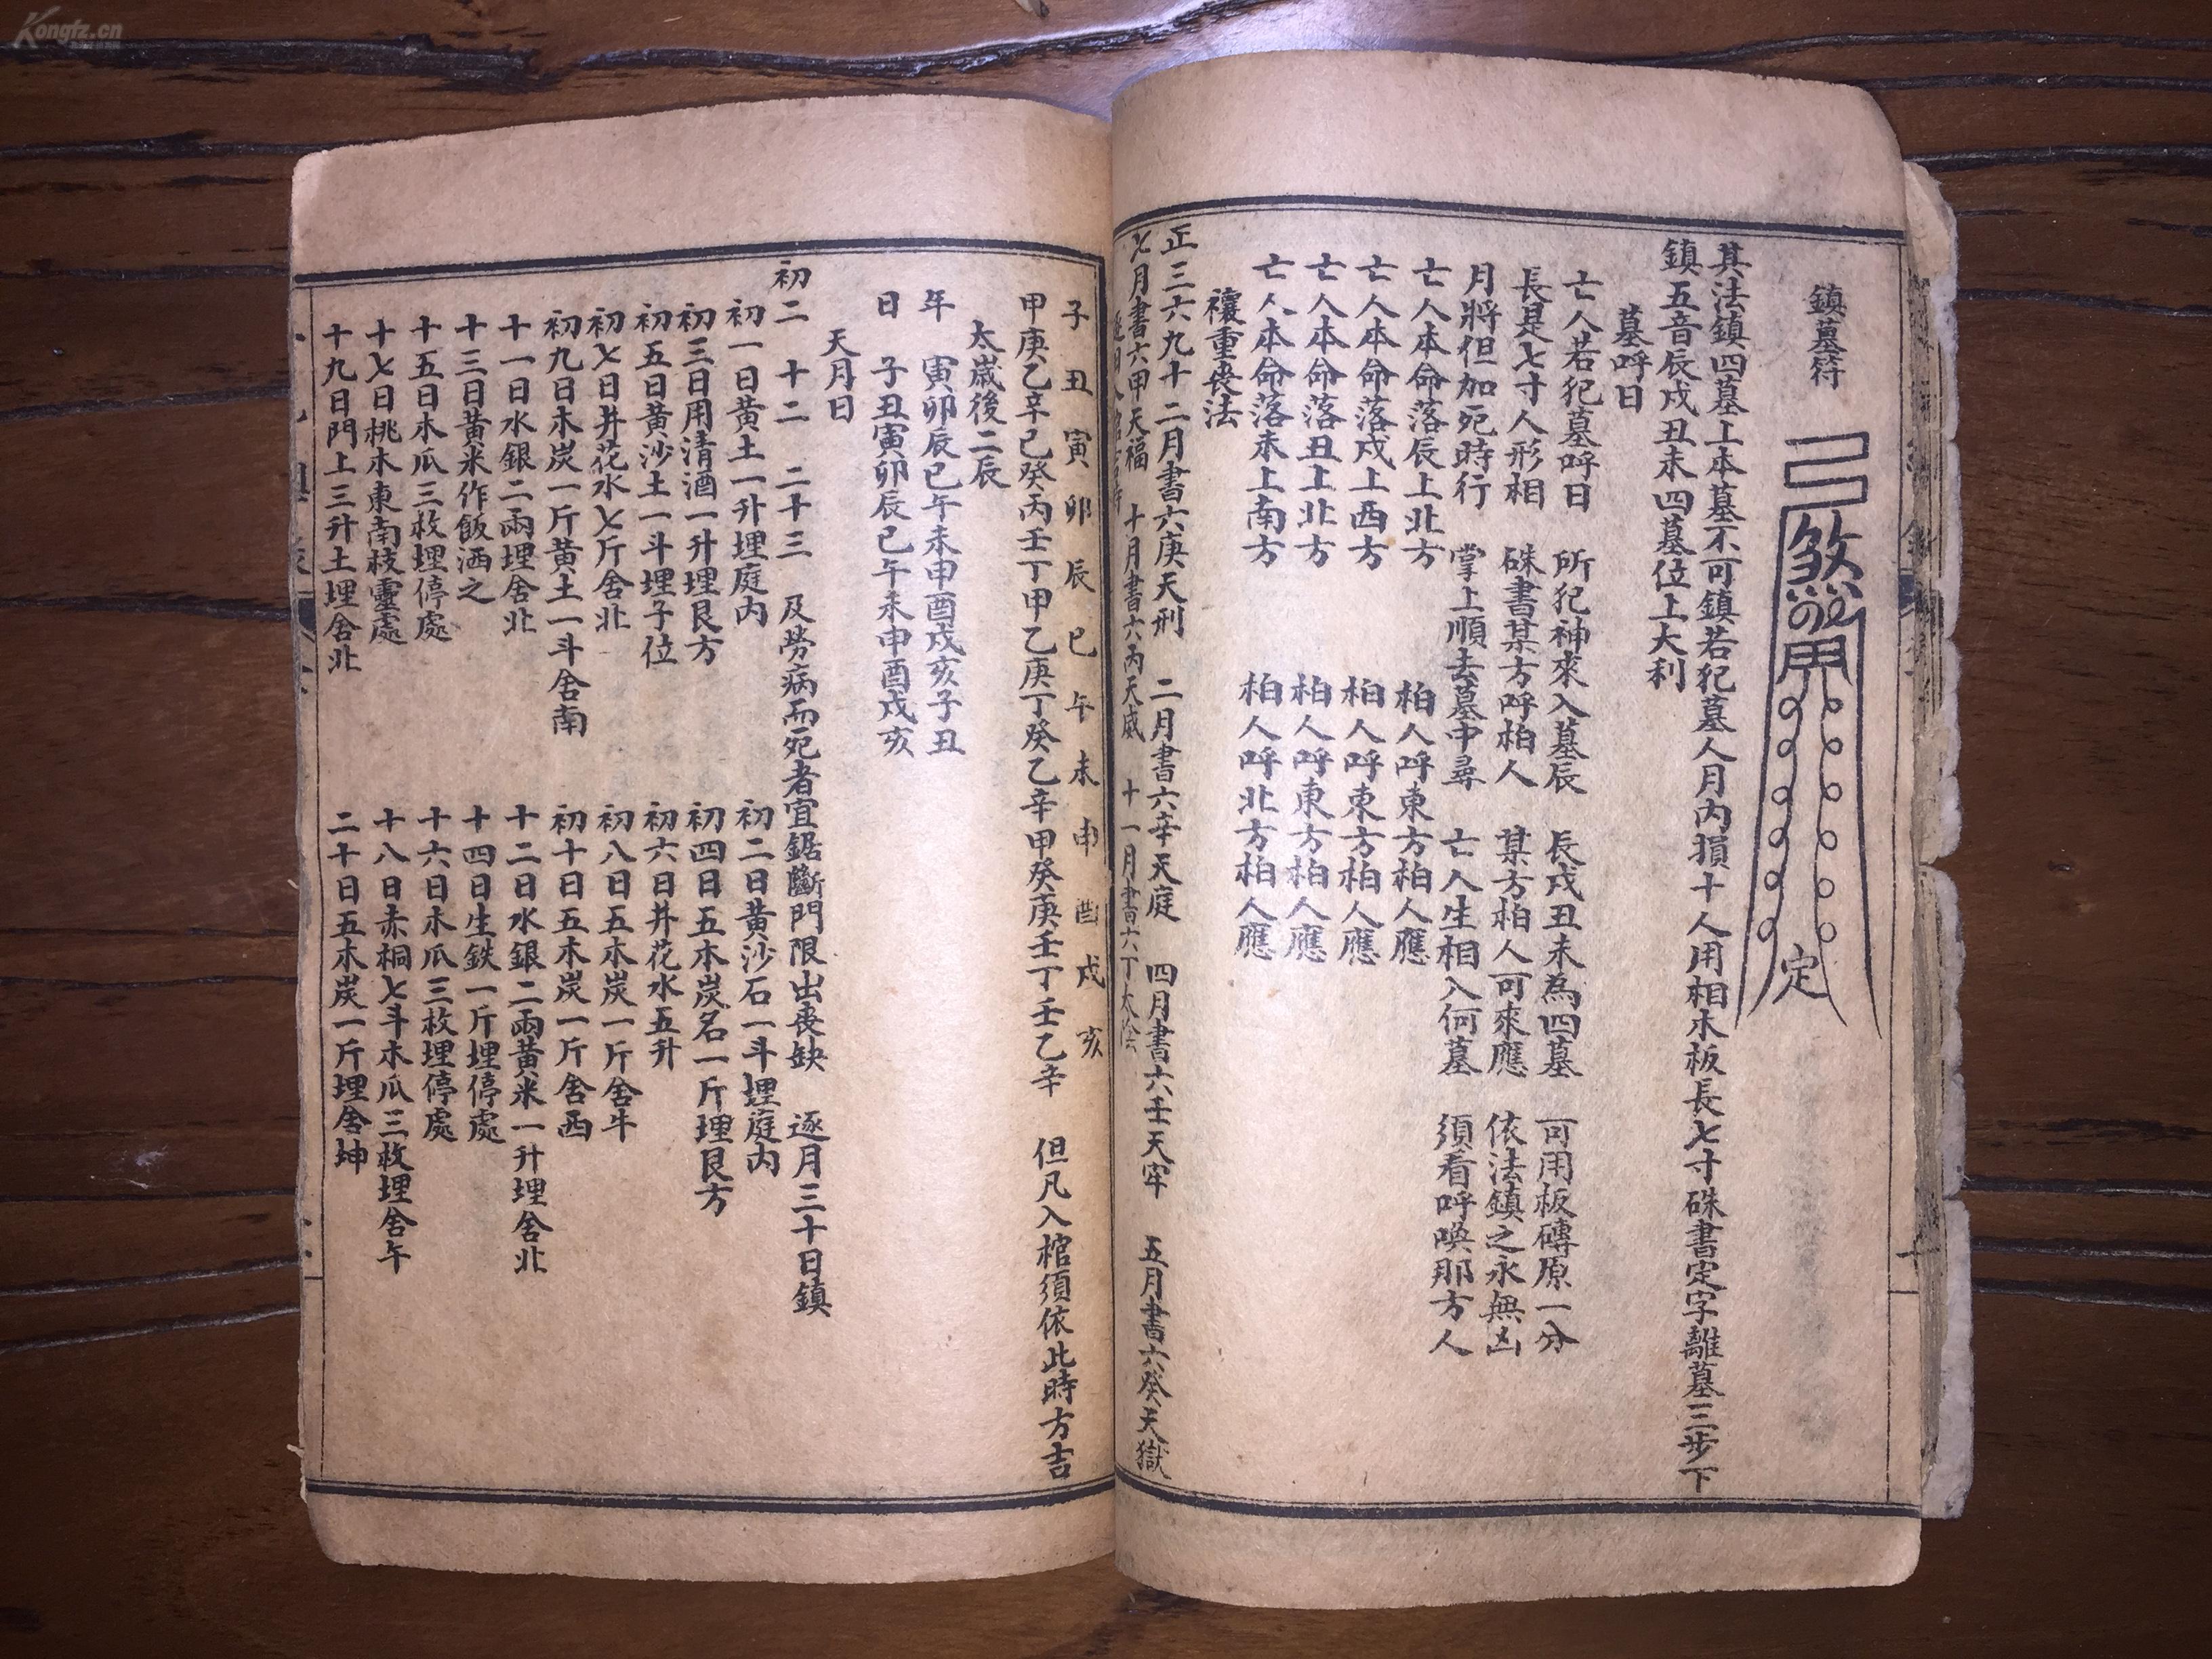 鎮墓符
煞
定
其法鎮四墓上本墓不可鎮若犯墓人月內損十人用相木板長七寸硃書定字離墓三步下
鎮五音辰戌丑未四墓位上大利
墓呼日
亡人若犯墓呼日 所犯神來入墓辰 長戌丑未為四墓 可用板磚原一分
長是七寸人形相 硃書某方呼柏人 某方柏人可來應 依法鎮之永無凶
月將但加死時行 掌上順去墓中尋 亡人生相入何墓 須看呼喚那方人
亡人本命落辰上北方 柏人呼東方柏人應
亡人本命落戌上西方 柏人呼東方柏人應
亡人本命落丑上北方 柏人呼東方柏人應
亡人本命落未上南方 柏人呼北方柏人應
禳重喪法
正三六九十二月書六庚天刑 二月書六辛天庭 四月書六壬天牢 五月書六癸天獄
七月書六甲天福 十月書六丙天威 十一月書六丁太陰
子丑寅卯辰巳午未申酉戌亥
甲庚乙辛巳癸丙壬丁甲乙庚丁癸乙辛甲癸庚壬丁壬乙辛 但凡入棺須依此時方吉
太歲後二辰
年 寅卯辰巳午未申酉戌亥子丑
日 子丑寅卯辰巳午未申酉戌亥
天月日
初二 十二 二十三 及勞病而死者宜鋸斷門限出喪缺 逐月三十日鎮
初一日黃土一升埋庭內 初二日黃沙石一斗埋庭內
初三日用清酒一升埋艮方 初四日五木炭名一斤埋艮方
初五日黃沙土一斗埋子位 初六日井花水五升
初七日井花水七斤舍北 初八日五木炭一斤舍牛
初九日木炭一斤黃土一斗舍南 初十日五木炭一斤舍西
十一日水銀二兩埋舍北 十二日水銀二兩黃米一升埋舍北
十三日黃米作飯洒之 十四日生鉄一斤埋停處
十五日木瓜三枚埋停處 十六日木瓜三枚埋停處
十七日桃木東南枝靈處 十八日赤桐七斗木瓜三枚埋舍午
十九日門上三升土埋舍北 二十日五木炭一斤埋舍坤
Kongfz.cn